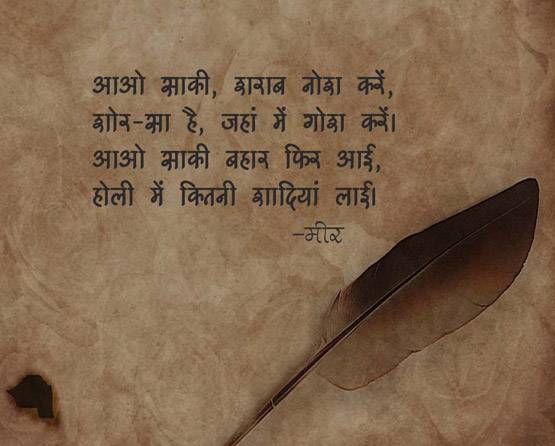 आओ साकी, शराब नोश करें,
शोर-सा है, जहां में गोश करें।
आओ साकी बहार फिर आई,
होली में कितनी शादियां लाई।
–मीर